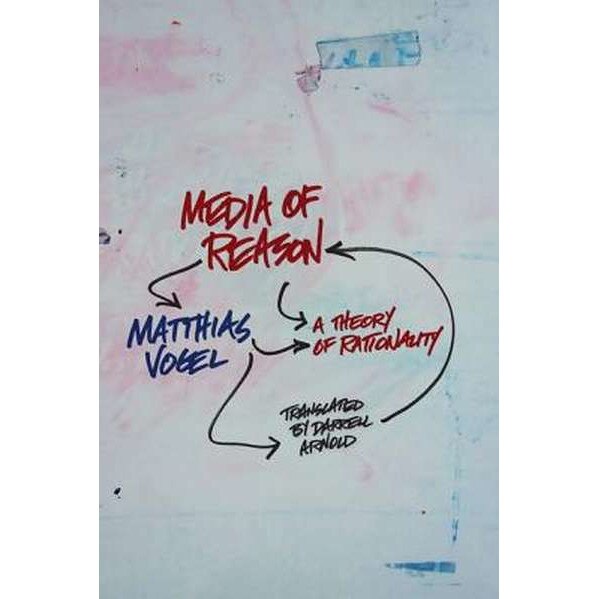 MEDIA OF
REASON
MATTHIAS
VOGEL
A THEORY
OF RATIONALITY
TRANSLATED
BY DARRELL
ARNOLD